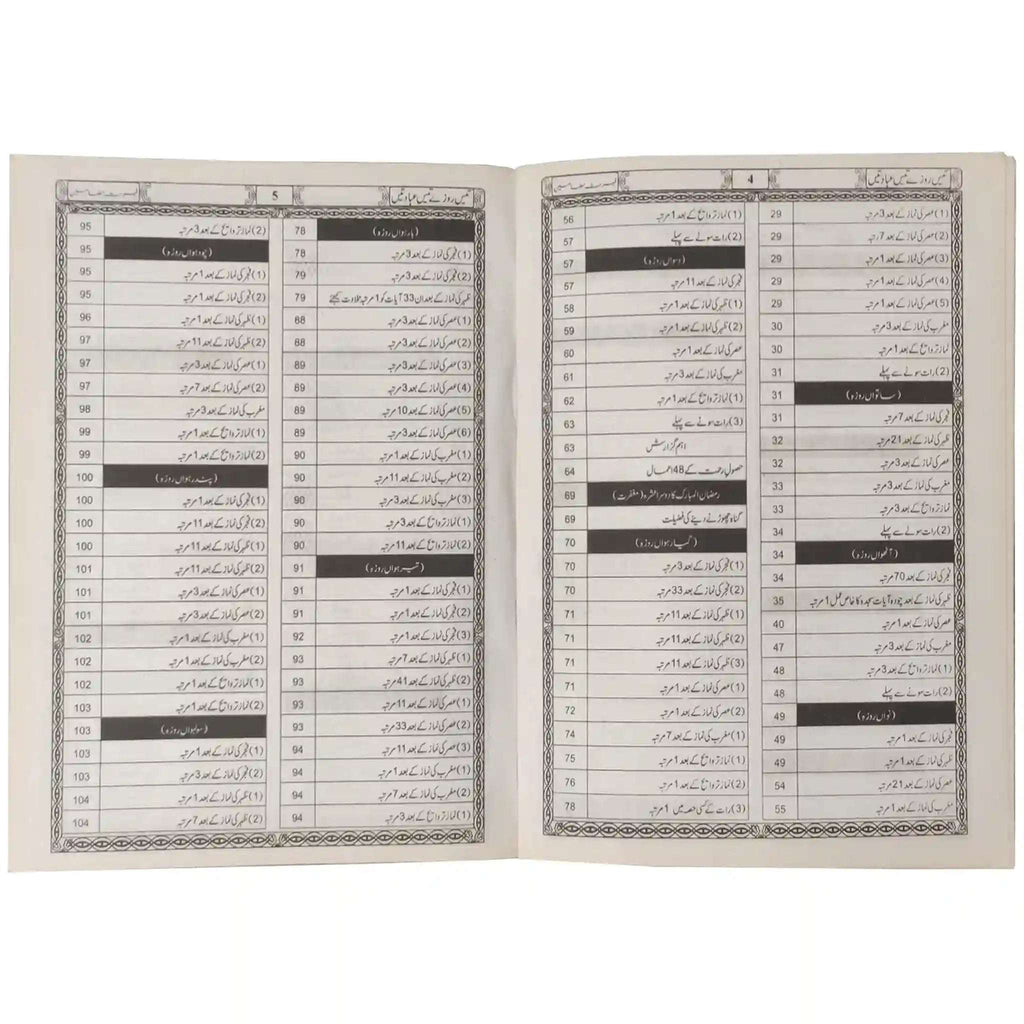 تیس روزے تیس عبادتیں 4 فہرست مضامین
(1) عصر کی نماز کے بعد 3 مرتبہ 29
(2) عصر کی نماز کے بعد 7 مرتبہ 29
(3) عصر کی نماز کے بعد 1 مرتبہ 29
(4) عصر کی نماز کے بعد 1 مرتبہ 29
(5) عصر کی نماز کے بعد 1 مرتبہ 29
مغرب کی نماز کے بعد 3 مرتبہ 30
نماز تراویح کے بعد 1 مرتبہ 30
(2) رات سونے سے پہلے 31
(ساتواں روزہ) 31
فجر کی نماز کے بعد 7 مرتبہ 31
ظہر کی نماز کے بعد 21 مرتبہ 32
عصر کی نماز کے بعد 3 مرتبہ 32
مغرب کی نماز کے بعد 3 مرتبہ 33
نماز تراویح کے بعد 3 مرتبہ 33
(2) رات سونے سے پہلے 34
(آٹھواں روزہ) 34
فجر کی نماز کے بعد 70 مرتبہ 34
ظہر کی نماز کے بعد چودہ آیات سجدہ کا خاص عمل 1 مرتبہ 35
عصر کی نماز کے بعد 1 مرتبہ 40
مغرب کی نماز کے بعد 3 مرتبہ 47
(1) نماز تراویح کے بعد 3 مرتبہ 48
(2) رات سونے سے پہلے 48
(نواں روزہ) 49
فجر کی نماز کے بعد 1 مرتبہ 49
ظہر کی نماز کے بعد 1 مرتبہ 49
عصر کی نماز کے بعد 21 مرتبہ 54
مغرب کی نماز کے بعد 1 مرتبہ 55
(1) نماز تراویح کے بعد 1 مرتبہ 56
(2) رات سونے سے پہلے 57
(دسواں روزہ) 57
فجر کی نماز کے بعد 11 مرتبہ 57
(1) ظہر کی نماز کے بعد 1 مرتبہ 58
(2) ظہر کی نماز کے بعد 1 مرتبہ 59
عصر کی نماز کے بعد 1 مرتبہ 60
مغرب کی نماز کے بعد 3 مرتبہ 61
(1) نماز تراویح کے بعد 1 مرتبہ 62
(3) رات سونے سے پہلے 63
اہم گزارش 63
حصول رحمت کے 48 اعمال 64
رمضان المبارک کا دوسرا عشرہ (مغفرت) 69
گناہ چھوڑنے دینے کی فضیلت 69
(گیارہواں روزہ) 70
(1) فجر کی نماز کے بعد 3 مرتبہ 70
(2) فجر کی نماز کے بعد 33 مرتبہ 70
(1) ظہر کی نماز کے بعد 11 مرتبہ 71
(2) ظہر کی نماز کے بعد 11 مرتبہ 71
(3) ظہر کی نماز کے بعد 11 مرتبہ 71
(1) عصر کی نماز کے بعد 1 مرتبہ 71
(2) عصر کی نماز کے بعد 1 مرتبہ 72
(1) مغرب کی نماز کے بعد 7 مرتبہ 74
(1) نماز تراویح کے بعد 1 مرتبہ 75
(2) نماز تراویح کے بعد 1 مرتبہ 76
(3) رات کے کسی حصہ میں 1 مرتبہ 78
تیس روزے تیس عبادتیں 5 فہرست مضامین
(بارہواں روزہ) 78
(1) فجر کی نماز کے بعد 3 مرتبہ 78
(2) فجر کی نماز کے بعد 3 مرتبہ 79
ظہر کی نماز کے بعد ان 33 آیات کو 1 مرتبہ تلاوت کیجئے 79
(1) عصر کی نماز کے بعد 3 مرتبہ 88
(2) عصر کی نماز کے بعد 3 مرتبہ 88
(3) عصر کی نماز کے بعد 3 مرتبہ 89
(4) عصر کی نماز کے بعد 3 مرتبہ 89
(5) عصر کی نماز کے بعد 10 مرتبہ 89
(6) عصر کی نماز کے بعد 3 مرتبہ 89
(1) مغرب کی نماز کے بعد 1 مرتبہ 90
(2) مغرب کی نماز کے بعد 11 مرتبہ 90
(3) مغرب کی نماز کے بعد 3 مرتبہ 90
(1) نماز تراویح کے بعد 3 مرتبہ 90
(2) نماز تراویح کے بعد 11 مرتبہ 90
(تیرہواں روزہ) 91
(1) فجر کی نماز کے بعد 1 مرتبہ 91
(2) فجر کی نماز کے بعد 1 مرتبہ 91
(3) فجر کی نماز کے بعد 1 مرتبہ 92
(1) ظہر کی نماز کے بعد 7 مرتبہ 93
(2) ظہر کی نماز کے بعد 41 مرتبہ 93
(1) عصر کی نماز کے بعد 11 مرتبہ 93
(2) عصر کی نماز کے بعد 33 مرتبہ 93
(3) عصر کی نماز کے بعد 11 مرتبہ 94
(1) مغرب کی نماز کے بعد 1 مرتبہ 94
(2) مغرب کی نماز کے بعد 7 مرتبہ 94
(1) نماز تراویح کے بعد 3 مرتبہ 94
(2) نماز تراویح کے بعد 3 مرتبہ 95
(چودہواں روزہ) 95
(1) فجر کی نماز کے بعد 1 مرتبہ 95
(2) فجر کی نماز کے بعد 1 مرتبہ 95
(1) ظہر کی نماز کے بعد 1 مرتبہ 96
(2) ظہر کی نماز کے بعد 11 مرتبہ 97
(1) عصر کی نماز کے بعد 3 مرتبہ 97
(2) عصر کی نماز کے بعد 7 مرتبہ 97
مغرب کی نماز کے بعد 3 مرتبہ 98
(1) نماز تراویح کے بعد 1 مرتبہ 99
(2) نماز تراویح کے بعد 1 مرتبہ 99
(پندرہواں روزہ) 100
(1) فجر کی نماز کے بعد 1 مرتبہ 100
(2) فجر کی نماز کے بعد 11 مرتبہ 100
(1) ظہر کی نماز کے بعد 11 مرتبہ 100
(2) ظہر کی نماز کے بعد 11 مرتبہ 101
(1) عصر کی نماز کے بعد 3 مرتبہ 101
(2) عصر کی نماز کے بعد 3 مرتبہ 101
(1) مغرب کی نماز کے بعد 1 مرتبہ 102
(2) مغرب کی نماز کے بعد 1 مرتبہ 102
(1) نماز تراویح کے بعد 1 مرتبہ 102
(2) نماز تراویح کے بعد 1 مرتبہ 103
(سولہواں روزہ) 103
(1) فجر کی نماز کے بعد 1 مرتبہ 103
(2) فجر کی نماز کے بعد 3 مرتبہ 103
(1) ظہر کی نماز کے بعد 1 مرتبہ 104
(2) ظہر کی نماز کے بعد 7 مرتبہ 104